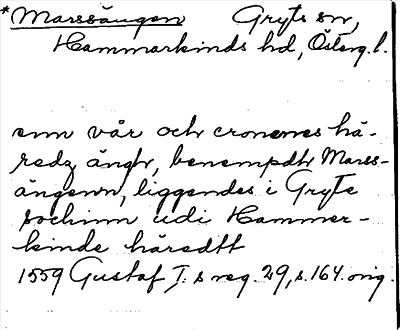 *Marssängen Gryts sn,
Hammarkinds hd, Österg. l.
enn vår och cronenes hä-
redz ängh, benempdh Marss-
ängenn, liggendes i Gryte
sochnn udi Hammer-
kinde häredtt
1559 Gustaf I:s reg. 29, s. 164. orig.